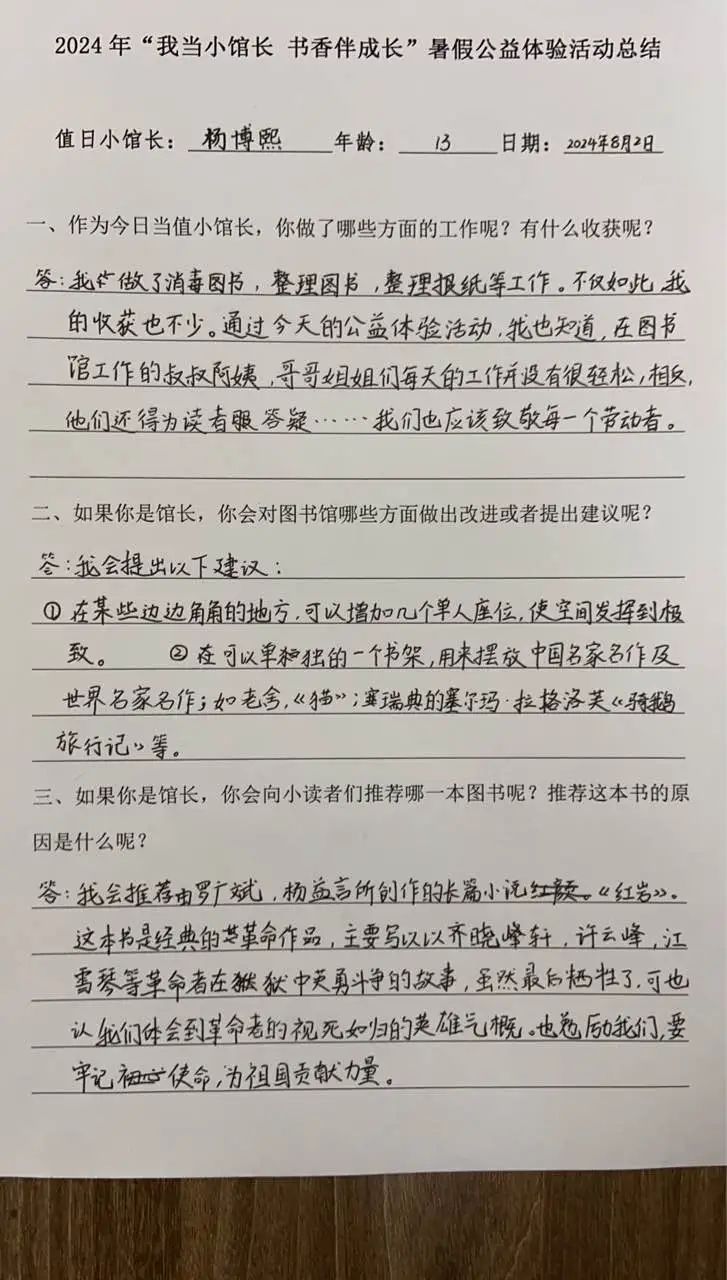 2024年“我当小馆长 书香伴成长”暑假公益体验活动总结
值日小馆长：杨博熙 年龄：13 日期：2024年8月2日
一、作为今日当值小馆长，你做了哪些方面的工作呢？有什么收获呢？
答：我做了消毒图书，整理图书，整理报纸等工作。不仅如此，我
的收获也不少。通过今天的公益体验活动，我也知道，在图书
馆工作的叔叔阿姨，哥哥姐姐们每天的工作并没有很轻松，相反，
他们还得为读者服答疑……我们也应该致敬每一个劳动者。
二、如果你是馆长，你会对图书馆哪些方面做出改进或者提出建议呢？
答：我会提出以下建议：
①在某些边边角角的地方，可以增加几个单人座位，使空间发挥到极
致。 ②在可以单独的一个书架，用来摆放中国名家名作及
世界名家名作；如老舍，《猫》；瑞典的塞尔玛·拉格洛芙《骑鹅
旅行记》等。
三、如果你是馆长，你会向小读者们推荐哪一本图书呢？推荐这本书的原
因是什么呢？
答：我会推荐由罗广斌，杨益言所创作的长篇小说《红岩》。
这本书是经典的革命作品，主要写以以齐晓轩，许云峰，江
雪琴等革命者在狱中英勇斗争的故事，虽然最后牺牲了，可也
认我们体会到革命者的视死如归的英雄气概。也勉励我们，要
牢记使命，为祖国贡献力量。